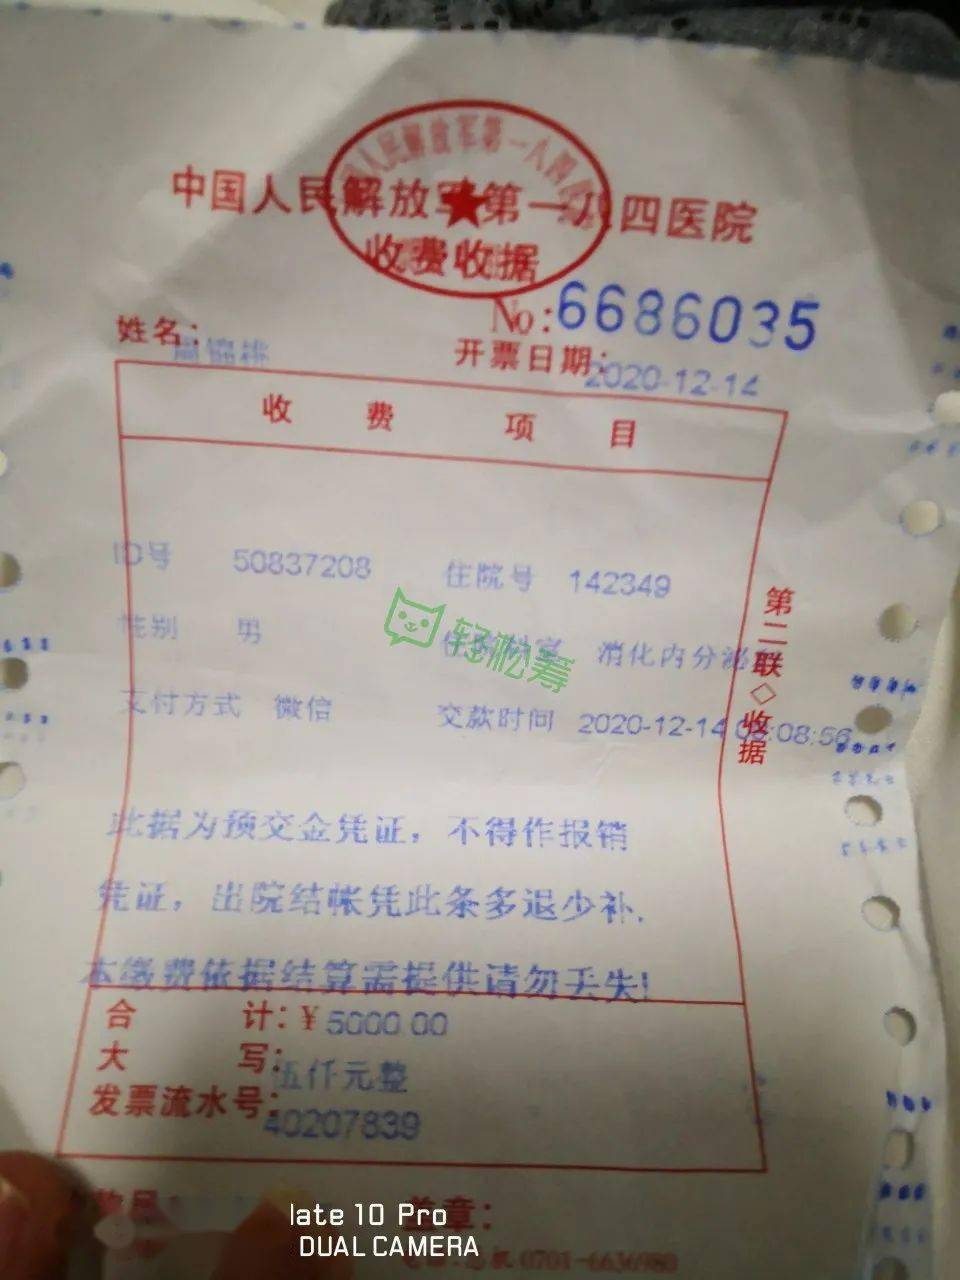 中国人民解放军第一八四医院
收费收据
No:6686035
姓名:
开票日期:2020-12-14
收 费 项 目
ID号 50837208 住院号 142349
性别 男 住院科室 消化内分泌科
轻松筹
支付方式 微信 交款时间 2020-12-14 :08:56
第二联◇收据
此据为预交金凭证,不得作报销
凭证,出院结帐凭此条多退少补.
本缴费依据结算需提供请勿丢失!
合 计:¥5000.00
大 写:伍仟元整
发票流水号:40207839
盖章:
0701-6636980
late 10 Pro
DUAL CAMERA